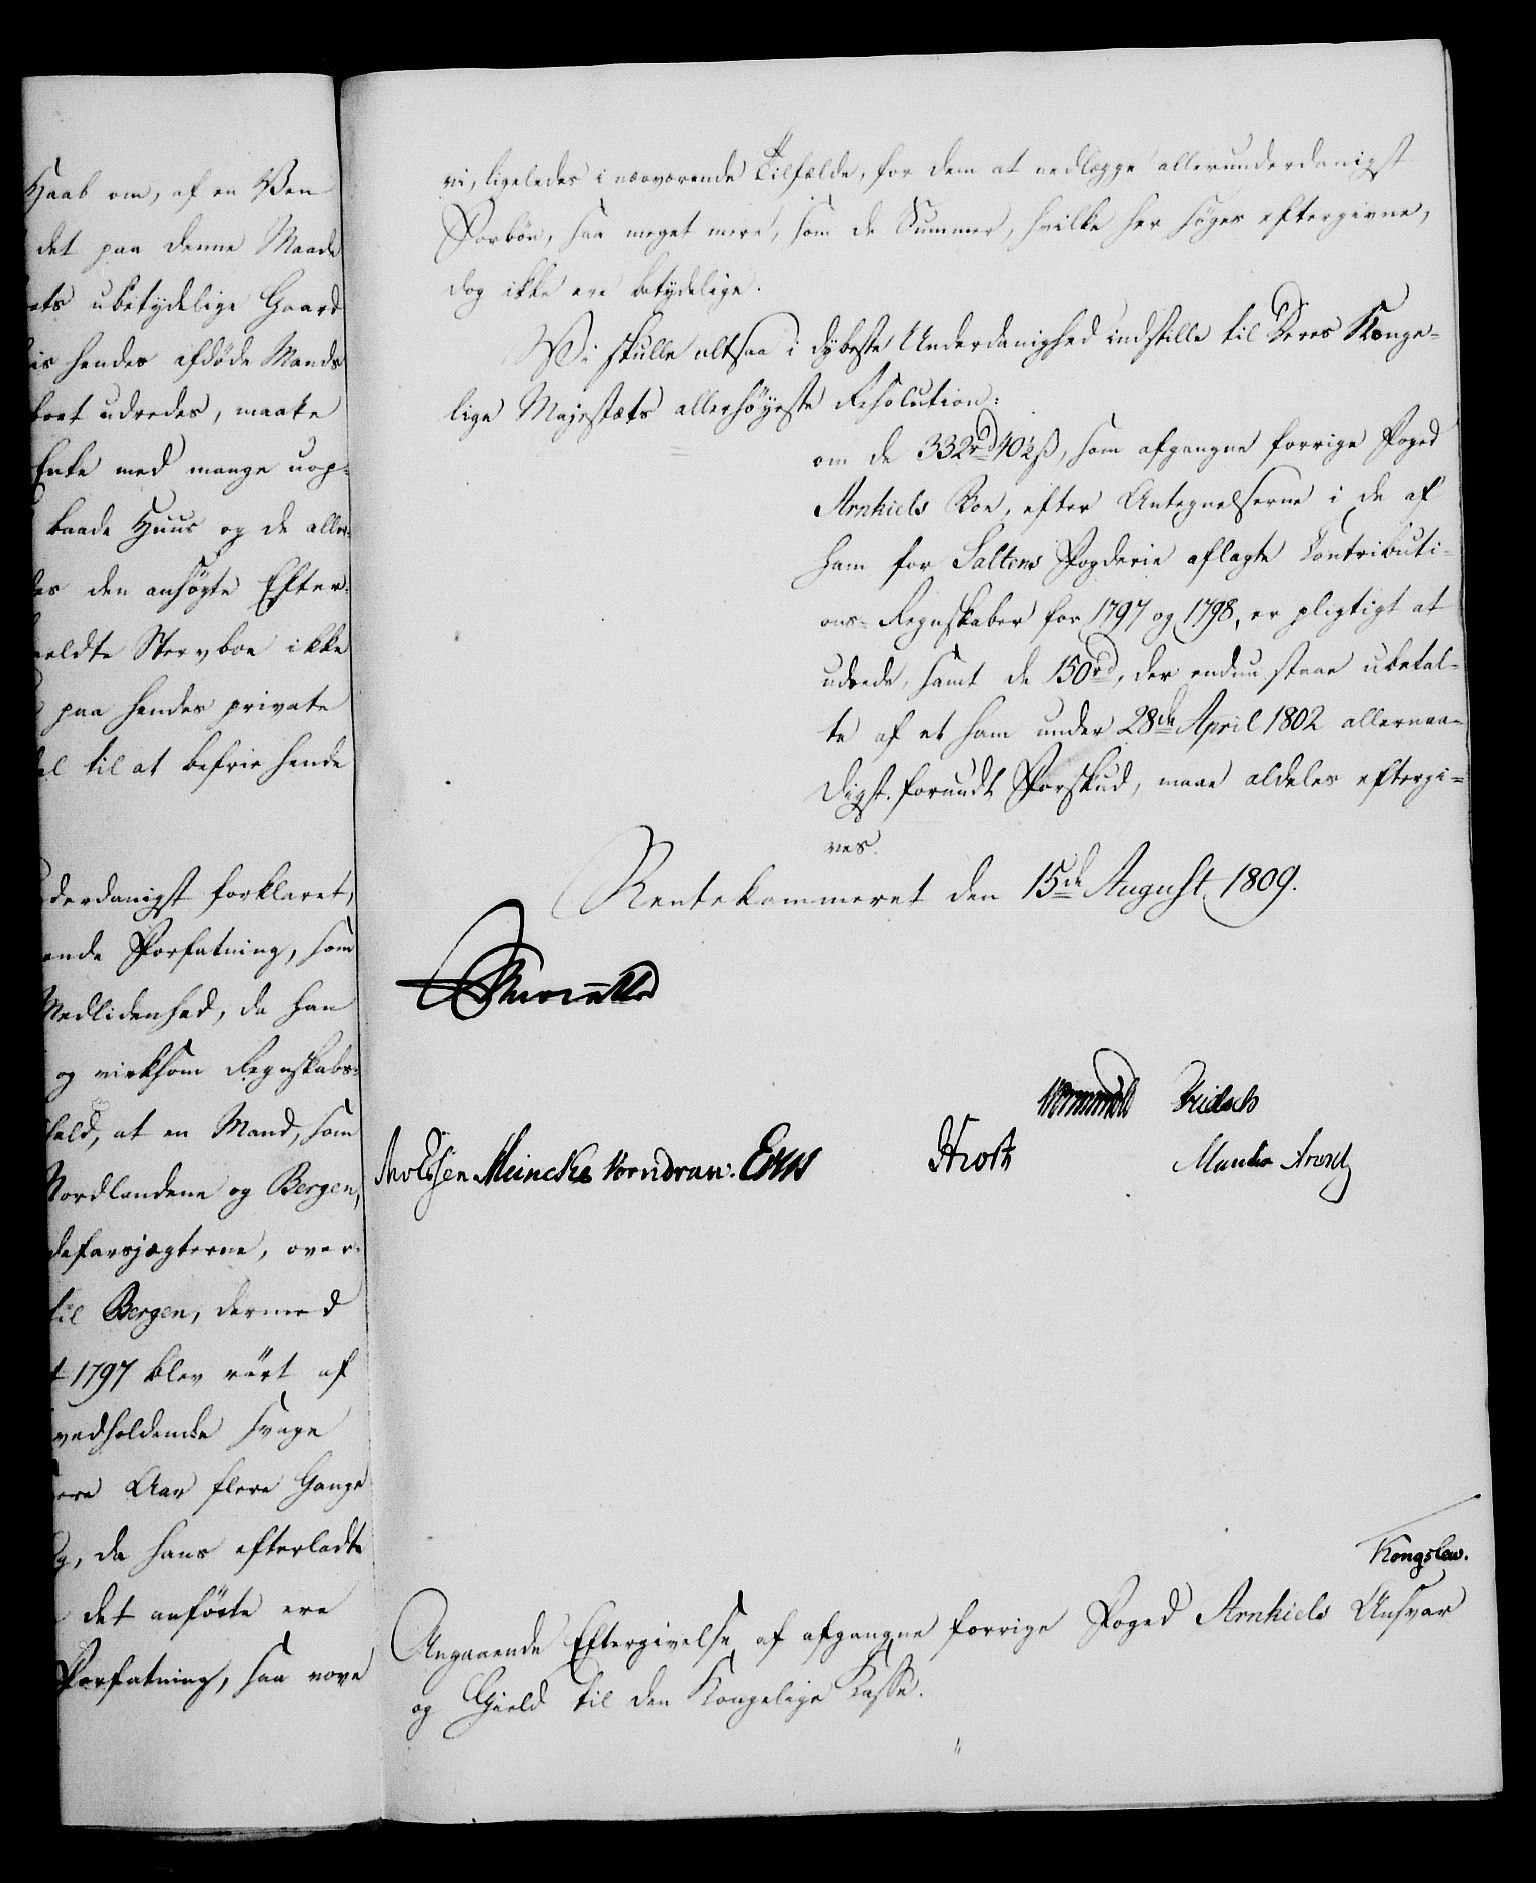 Haab om, af en Ven
det paa denne Maade
ets ubetydelige Gaard
is hendes afdöde Mands
bort udredes, maatte
Enke med mange uop-
baade Huus og de aller-
es den ansögte Efter-
meldte Stervboe ikke
paa hendes private
del til at befrie hende
derdanigst forklaret,
ende Forfatning, som
Medlidenhed, da han
og virksom Regnskabs-
held, at en Mand, som
Nordlandene og Bergen,
defarsjægterne, over-
til Bergen, dermed
1797 blev rört af
vedholdende svage
ere Aar flere Gange
og, da hans efterladte
det anförte ere
Forfatning, saa vove
vi, ligeledes i nærværende Tilfælde, for dem at nedlægge allerunderdanigst
Forbön, saa meget mere, som de Summer, hvilke her söges eftergivne,
dog ikke ere betydelige.
Vi skulle altsaa i dybeste Underdanighed indstille til Deres Konge-
lige Majestæts allerhöyeste Resolution:
om de 332rd 40½ß, som afgangne forrige Foged
Arnkiels Boe, efter Antegnelserne i de af
ham for Saltens Fogderie aflagte Contributi-
ons-Regnskaber for 1797 og 1798, er pligtigt at
udrede, samt de 150rd, der endnu staae ubetal-
te af et ham under 28de April 1802 allernaa-
digst forundt Forskud, maae aldeles eftergi-
ves.
Rentekammeret den 15de August 1809.
Wormskiold Fridsch
Knoldsen Meincke Vorndran. Hrost Munthe
Kongslew.
Angaaende Eftergivelse af afgangne forrige Foged Arnkiels Ansvar
og Gield til den Kongelige Kasse.